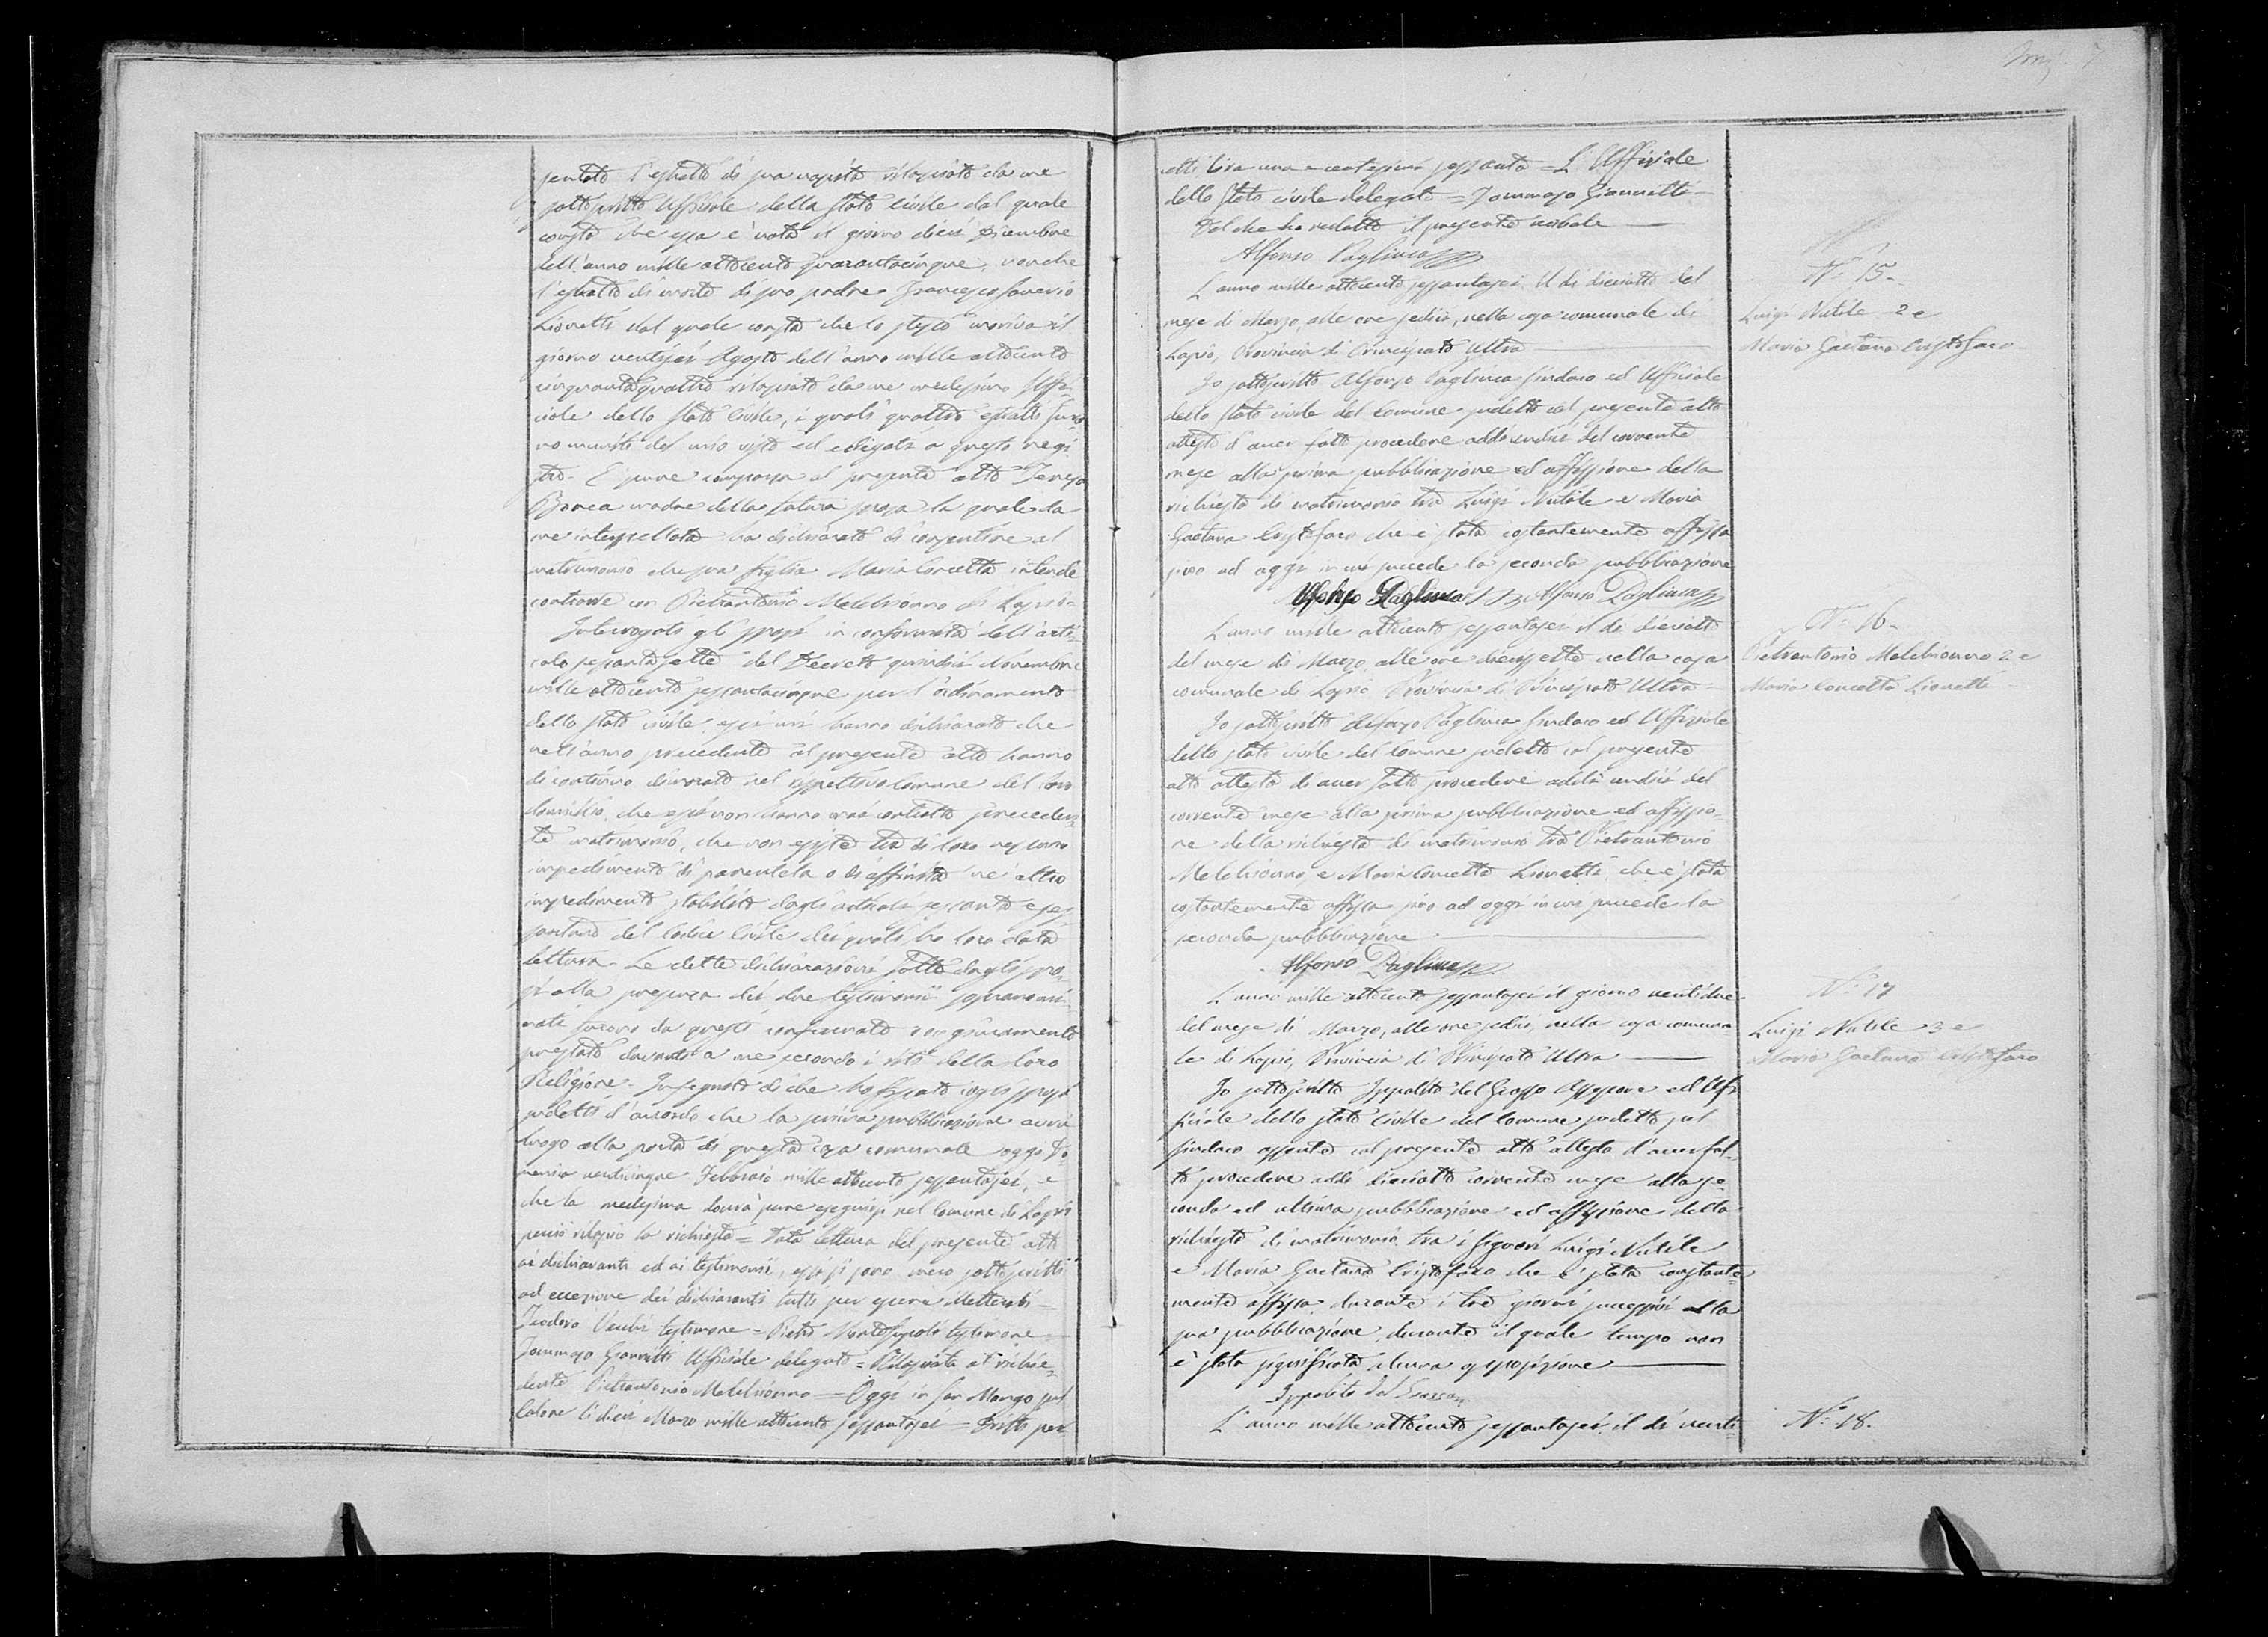 sentato l'estratto di sua nascita rilasciato da me
sottoscritto Uffiziale dello Stato Civile dal quale
consta che essa è nata il giorno dieci Dicembre
dell'anno mille ottocento quarantacinque, nonche
l'estratto di morte di suo padre Francesco Saverio
Lionetti dal quale consta che lo stesso moriva il
giorno ventisei Agosto dell'anno mille ottocento
cinquantaquattro rilasciato da me medesimo Uffi-
ciale dello Stato Civile, i quali quattro estratti furo
no muniti del mio visto ed allegati a questo regi
stro. È pure comparsa al presente atto Teresa
madre della futura sposa la quale da
me interpellata ha dichiarato di consentire al
matrimonio che sua figlia Maria Concetta intende
contrarre con Pietrantonio Melchionno di Lapio =
Interrogati gli sposi in conformità dell'arti-
colo sessantasette del Decreto quindici Novembre
mille ottocento sessantacinque per l'ordinamento
dello stato civile, essi mi hanno dichiarato che
nell'anno precedente al presente atto hanno
di continuo dimorato nel rispettivo Comune del loro
domicilio, che essi non hanno mai contratto preceden
te matrimonio, che non esiste tra di loro nessuno
impedimento di parentela o di affinità nè altro
impedimento stabilito dagli articoli sessanta e ses
santuno del Codice Civile dei quali ho loro data
lettura. Le dette dichiarazioni fatte dagli spo-
si alla presenza dei due testimonii sopranomi-
nati furono da questi confermate con giuramento
prestato davanti a me secondo i riti della loro
Religione. In seguito di che ho fissato cogli sposi
sudetti d'accordo che la prima pubblicazione avrà
luogo alla porta di questa casa comunale oggi Do-
menica venticinque Febbraio mille ottocento sessantasei, e
che la medesima dovrà pure eseguirsi nel Comune di Lapio
perciò rilascio la richiesta = Data lettura del presente atto
ai dichiaranti ed ai testimoni, essi si sono meco sottoscritti
ad eccezione dei dichiaranti tutti per essere illetterati =
Teodoro testimone = Pietro testimone =
Tommaso Giannetti Uffiziale delegato = Rilasciata al richie-
dente Pietrantonio Melchionno = Oggi in San Mango sul
Calore li dieci Marzo mille ottocento sessantasei = Dritti per
atti lira una e centesimi sessanta = L'Uffiziale
dello Stato civile delegato = Tommaso Giannetti =
Del che ho redatto il presente verbale
Alfonso Pagliuca
L'anno mille ottocento sessantasei, il dì dieciotto del
mese di Marzo, alle ore sedici, nella casa comunale di
Lapio, Provincia di Principato Ultra
Io sottoscritto Alfonso Pagliuca Sindaco ed Uffiziale
dello stato civile del Comune sudetto col presente atto
attesto d'aver fatto procedere addì undici del corrente
mese alla prima pubblicazione ed affissione della
richiesta di matrimonio tra Luigi Nutile e Maria
Gaetana Cristofaro che è stata costantemente affissa
sino ad oggi in cui succede la seconda pubblicazione
Alfonso Pagliuca Alfonso Pagliuca
L'anno mille ottocento sessantasei il dì dieciotto
del mese di Marzo alle ore diecissette nella casa
comunale di Lapio Provincia di Principato Ultra
Io sottoscritto Alfonso Pagliuca Sindaco ed Uffiziale
dello stato civile del Comune sudetto col presente
atto attesto di aver fatto procedere addì undici del
corrente mese alla prima pubblicazione ed affissio-
ne della richiesta di matrimonio tra Pietrantonio
Melchionno e Maria Concetta Lionetti che è stata
costantemente affissa sino ad oggi in cui succede la
seconda pubblicazione
Alfonso Pagliuca
L'anno mille ottocento sessantasei il giorno ventidue
del mese di Marzo, alle ore sedici, nella casa comuna-
le di Lapio, Provincia di Principato Ultra
Io sottoscritto Ippolito del Grosso Assessore ed Uf
fiziale dello stato Civile del Comune sudetto pel
Sindaco assente col presente atto attesto d'aver fat-
to procedere addì dieciotto corrente mese alla se-
conda ed ultima pubblicazione ed affissione della
richiesta di matrimonio tra i signori Luigi Nutile
e Maria Gaetana Cristofaro che è stata costante-
mente affissa durante i tre giorni successivi alla
sua pubblicazione, durante il quale tempo non
è stata significata alcuna opposizione
Ippolito del Grosso
L'anno mille ottocento sessantasei, il dì venti
N.º 15.
Luigi Nutile 2 e
Maria Gaetana Cristofaro
N.º 16.
Pietrantonio Melchionno 2 e
Maria Concetta Lionetti
N.º 17
Luigi Nutile 3 e
Maria Gaetana Cristofaro
N.º 18.